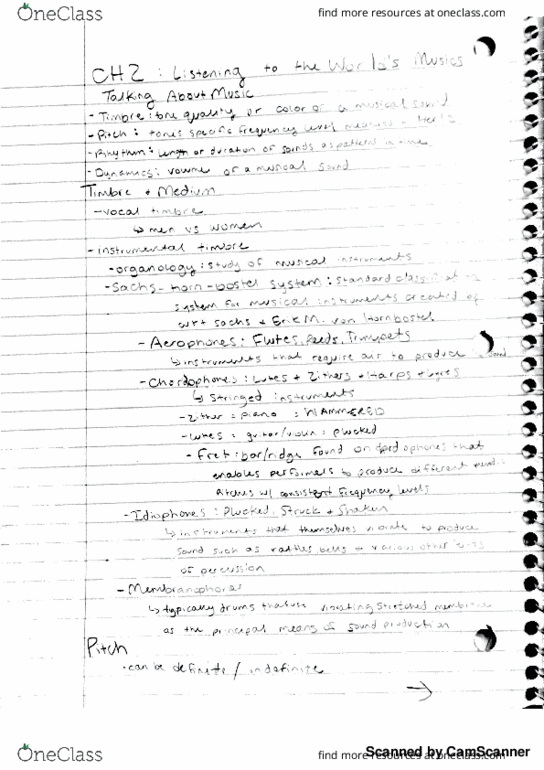 OneClass
find more resources at oneclass.com
CH2 : Listening to the World's Musics
Talking About Music
- Timbre : tone quality or color of a musical sound
- Pitch : tones specific frequency level measured in Hertz
- Rhythm : length or duration of sounds as pattern in time
- Dynamics : volume of a musical sound
Timbre + Medium
- vocal timbre
↳ men vs women
- instrumental timbre
- organology : study of musical instruments
- Sachs - horn - bostel system : standard
system for musical instruments created of
sachs + Erik M. von Hornbostel
- Aerophones : Flutes, Reeds, Trumpets
↳ instruments that require air to produce sound
- Chordophones : Lutes + Zithers + Harps + lyres
↳ Stringed instruments
- Zither : piano : HAMMERED
- lutes : guitar/violin : plucked
- Fret : bar/ridge found on chordophones that
enables performers to produce different
pitches w/ consistent frequency levels
- Idiophones : Plucked, Struck + Shaken
↳ instruments that themselves vibrate to produce
sound such as rattles bells + various other
of percussion
- Membranophones
↳ typically drums that use vibrating stretched membrane
as the principal means of sound production
Pitch
· can be definite / indefinite
→
OneClass
find more resources at oneclass.com
Scanned by CamScanner